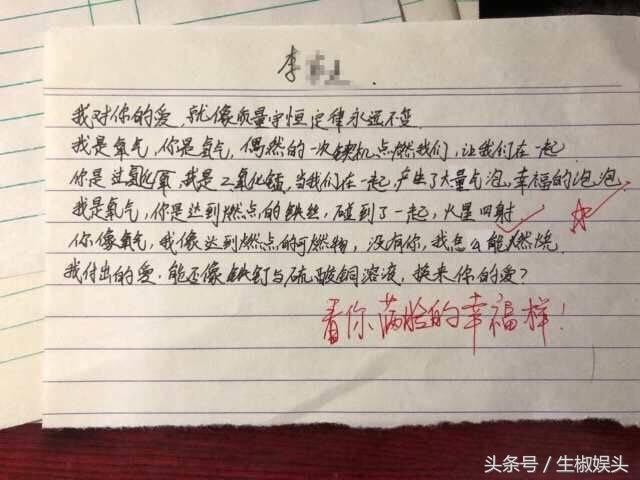 李
我对你的爱,就像质量守恒定律永远不变
我是氧气,你是氢气,偶然的一次契机点燃我们,让我们在一起
你是过氧化氢,我是二氧化锰,当我们在一起,产生了大量气泡,幸福的泡泡
我是氧气,你是达到燃点的铁丝,碰到了一起,火星四射
你像氧气,我像达到燃点的可燃物,没有你,我怎么能燃烧
我付出的爱,能否像铁钉与硫酸铜溶液,换来你的爱?
看你满脸的幸福样!
头条号/生椒娱头